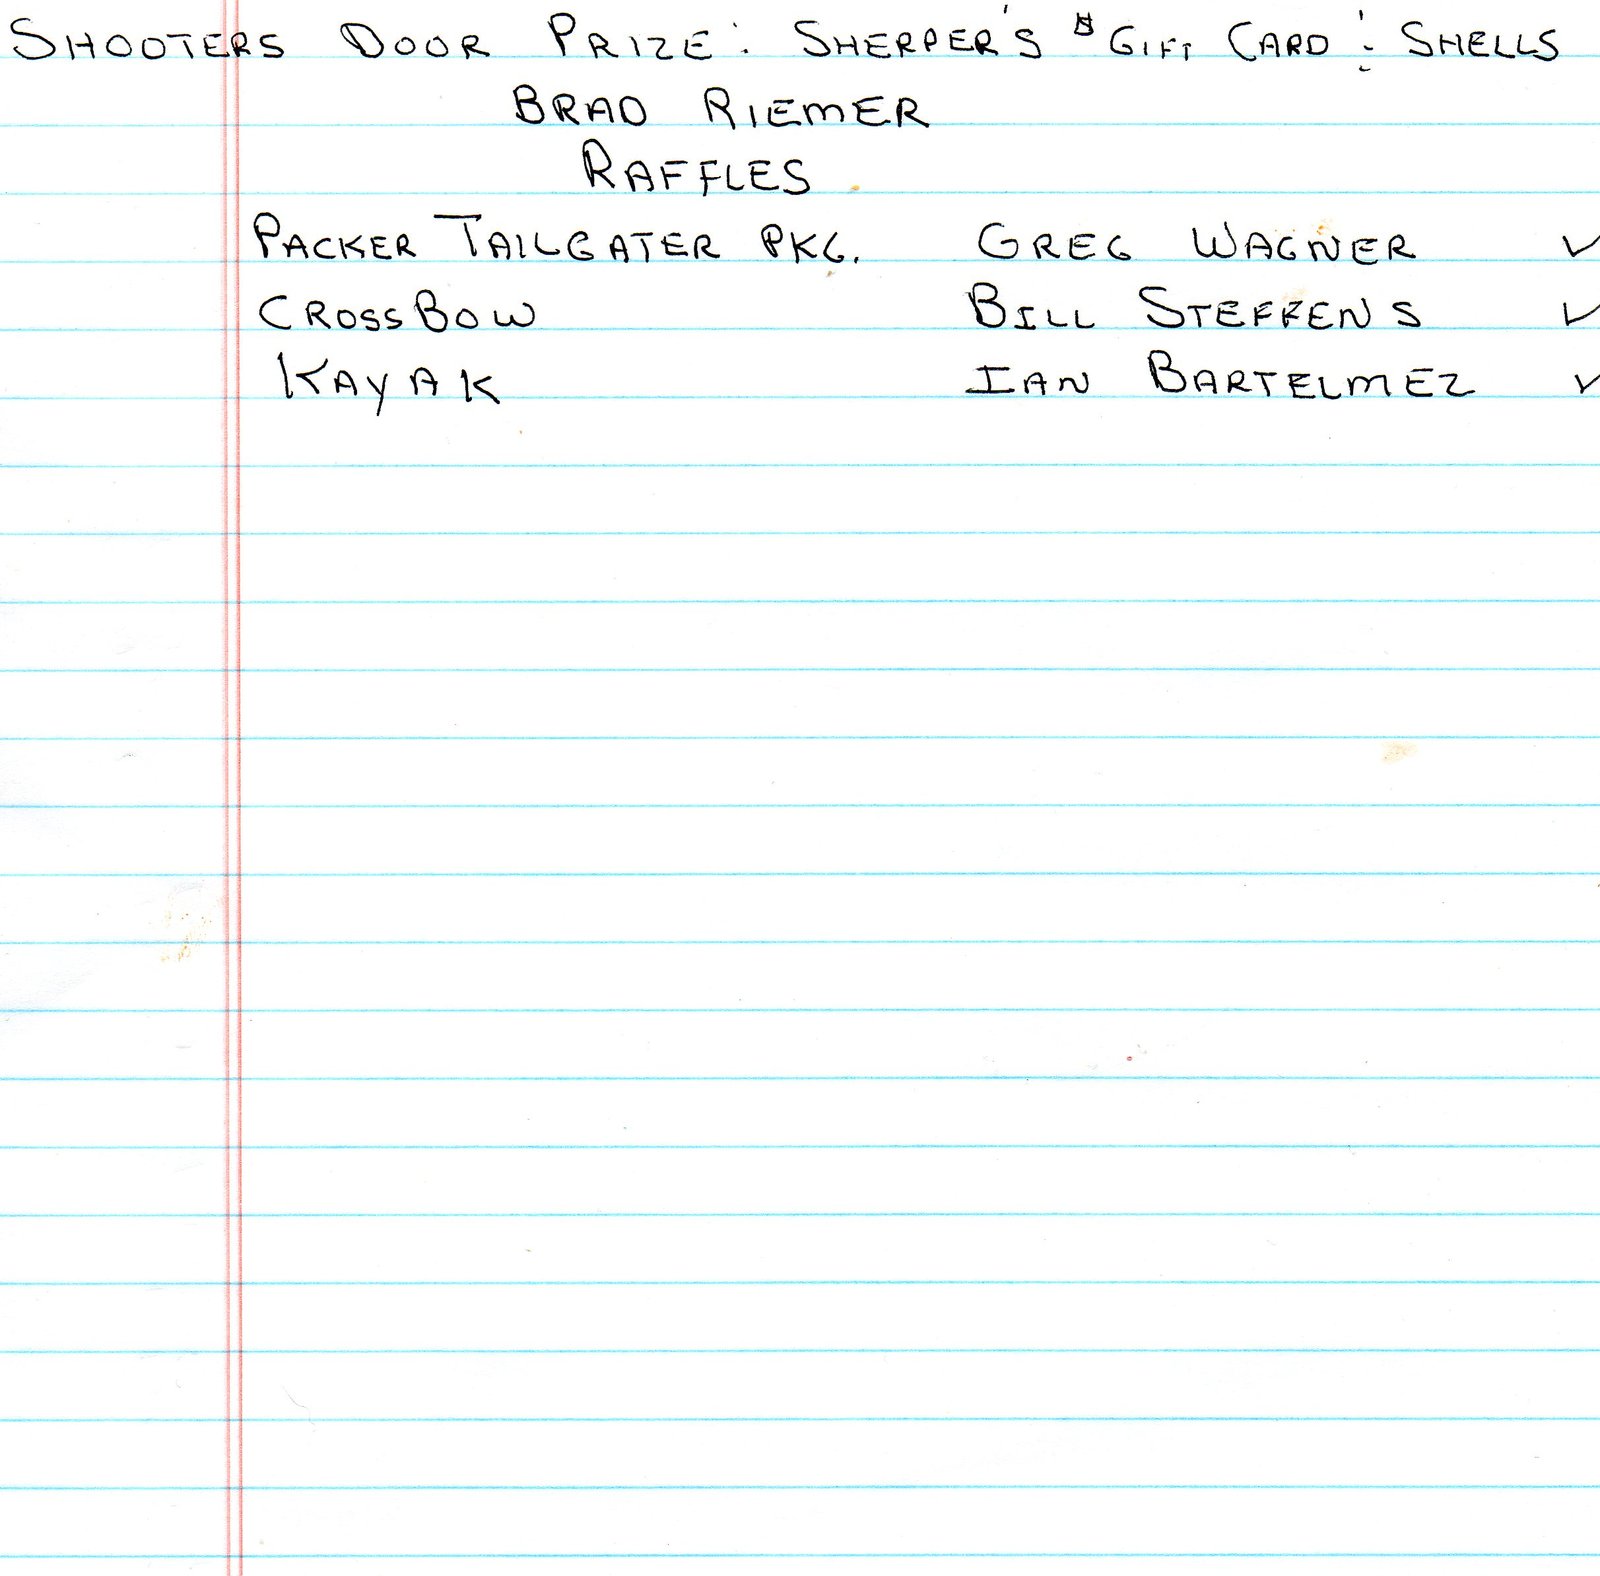 SHOOTERS DOOR PRIZE: SHERPER'S $ GIFT CARD : SHELLS
BRAD RIEMER
RAFFLES
PACKER TAILGATER PKG. GREG WAGNER ✓
CROSSBOW BILL STEFFENS ✓
KAYAK IAN BARTELMEZ ✓